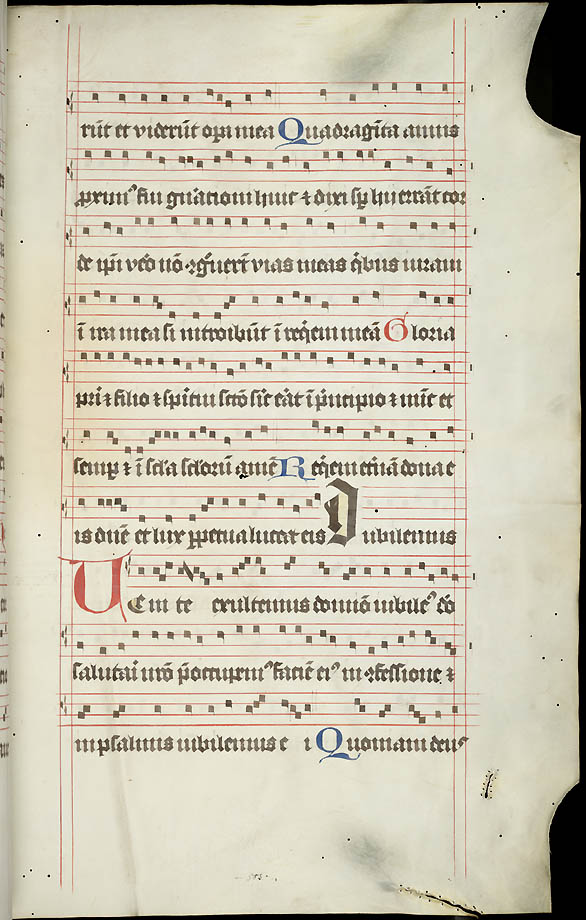 rūt et viderūt opa mea Quadragīta annis
proxim⁹ fui gn̄acioni huic ⁊ dixi sp̄ hii errāt cor
de ip̄i vēo nō ꝯgn̄uert̄ vias meas qͥbus iuraui
ī ira mea si introibūt ī reqͥem meā Gloria
pr̄i ⁊ filio ⁊ spiritui sctō sic̄ erāt ī prͥncipio ⁊ nūc et
semp̱ ⁊ ī scl̄a scl̄orū amē Reqͥem etnā dona e
is dn̄e et lux p̱petua luceat eis Jubilemus
Uenite exultemus domīo iubile⁹ dō
salutari nrō p̄occupem⁹ faciē ei⁹ in ꝯfessione ⁊
in psalmis iubilemus e i Quoniam deus